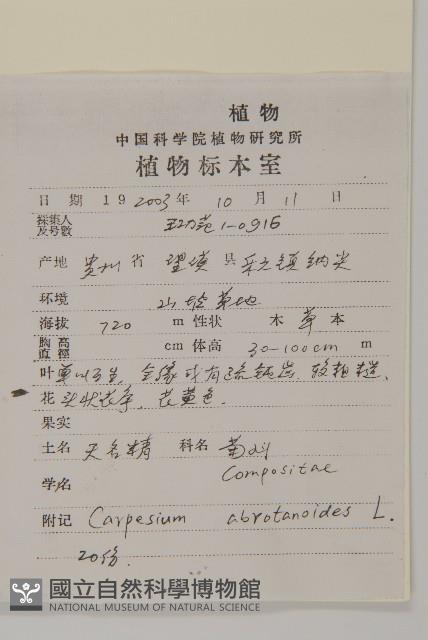 植物
中国科学院植物研究所
植物标本室
日 期 19 2003年 10 月 11 日
採集人
及号數 1-0916
产地 贵州 省 望谟 县 镇纳尖
环境 山坡草地
海拔 720 m 性狀 木 草 本
胸高
直徑 cm 体高 30-100cm m
叶 单叶互生, 全缘或有疏锯齿 较粗糙.
花 头状花序, 花黄色.
果实
土名 天名精 科名 菊科
Compositae
学名
附记 Carpesium abrotanoides L.
20份.
國立自然科學博物館
NATIONAL MUSEUM OF NATURAL SCIENCE